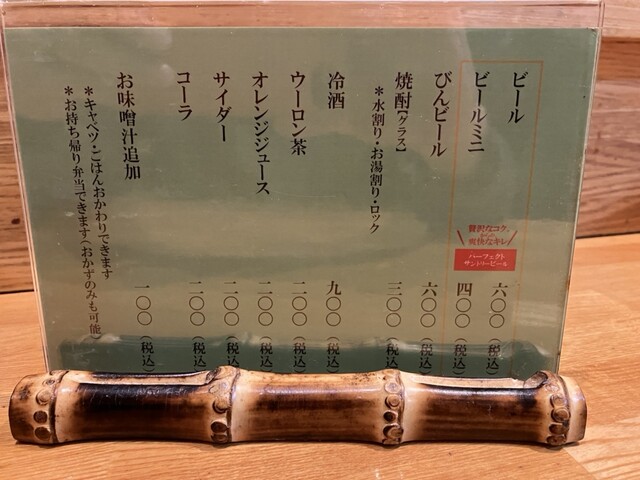 ビール 六〇〇(税込)
ビールミニ 四〇〇(税込)
贅沢なコク、
爽快なキレ
パーフェクト
サントリービール
びんビール 六〇〇(税込)
焼酎[グラス] 三〇〇(税込)
*水割り・お湯割り・ロック
冷酒 九〇〇(税込)
ウーロン茶 二〇〇(税込)
オレンジジュース 二〇〇(税込)
サイダー 二〇〇(税込)
コーラ 二〇〇(税込)
お味噌汁追加 一〇〇(税込)
*キャベツ・ごはんおかわりできます
*お持ち帰り弁当できます(おかずのみも可能)